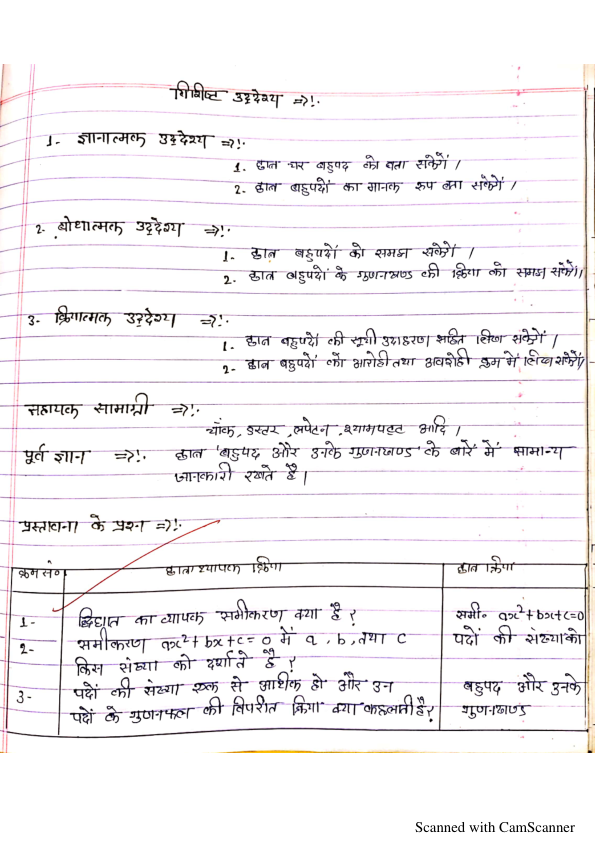 विशिष्ट उद्देश्य ⇒!.
1- ज्ञानात्मक उद्देश्य ⇒!.
1. छात्र घर बहुपद को बता सकेगें ।
2. छात्र बहुपदों का मानक रूप बता सकेगें ।
2- बोधात्मक उद्देश्य ⇒!.
1- छात्र बहुपदों को समझ सकेगें ।
2. छात्र बहुपदों के गुणनखण्ड की क्रिया को समझ सकेगें।
3- क्रियात्मक उद्देश्य ⇒!.
1. छात्र बहुपदों की सूची उदाहरण सहित लिख सकेगें ।
2- छात्र बहुपदों को आरोही तथा अवरोही क्रम में लिख सकेगें।
सहायक सामाग्री ⇒!.
चॉक, डस्टर, लपेटन, श्यामपट्ट आदि ।
पूर्व ज्ञान ⇒!. छात्र 'बहुपद और उनके गुणनखण्ड' के बारें में सामान्य
जानकारी रखते है।
प्रस्तावना के प्रश्न ⇒!.
क्रम सं० छात्राध्यापक क्रिया छात्र क्रिया
1- द्विघात का व्यापक समीकरण क्या है ? समी० ax²+bx+c=0
2- समीकरण ax²+bx+c=0 में a, b, तथा c पदों की संख्या को
किस संख्या को दर्शाते है ?
3- पदों की संख्या एक से अधिक हो और उन बहुपद और उनके
पदों के गुणनफल की विपरीत क्रिया क्या कहलाती है? गुणनखण्ड
Scanned with CamScanner